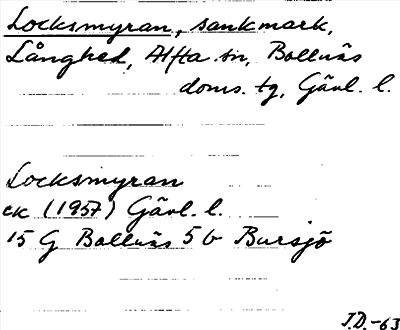 Locksmyran, sankmark,
Långhed, Alfta sn, Bollnäs
doms. tg, Gävl. l.
Locksmyran
ek (1957) Gävl. l.
15 G Bollnäs 5 b Bursjö
J.D.-63